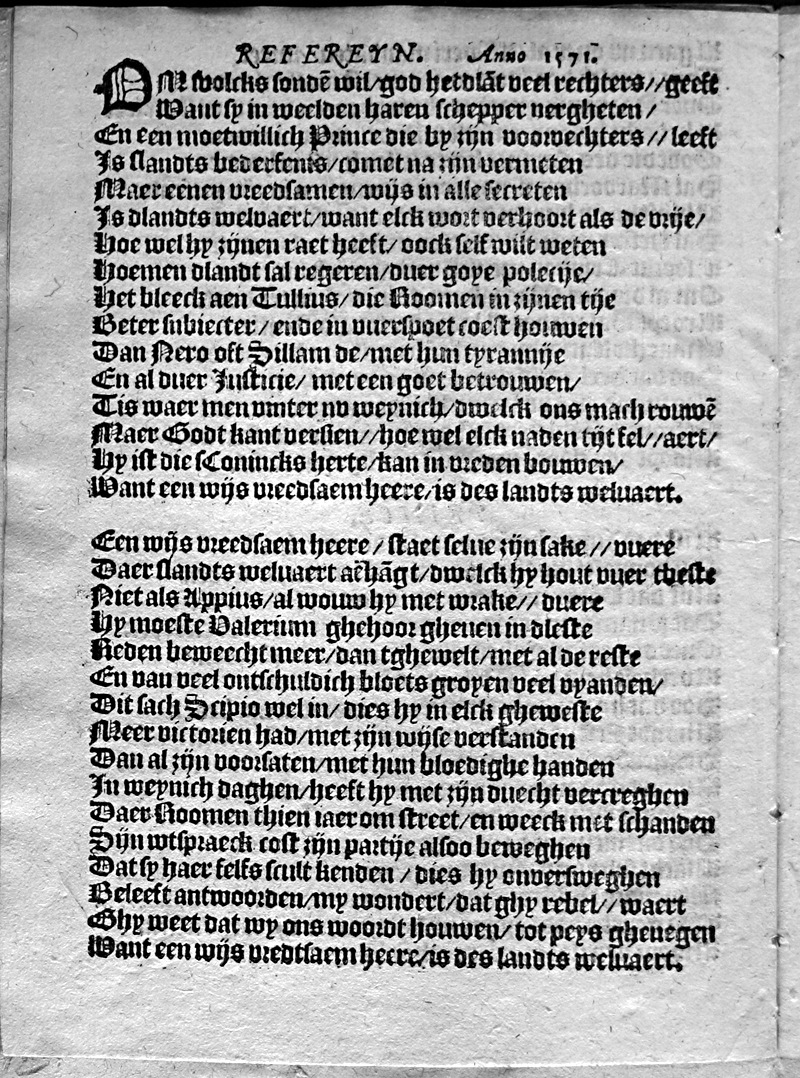 REFEREYN. Anno 1571.
OM tvolcks sondē wil/god hetdlāt veel rechters//geeft
Want sy in weelden haren schepper vergheten/
En een moetwillich Prince die by zijn voorvechters//leeft
Is slandts bederfenis/comet na zijn vermeten
Maer eenen vreedsamen/wijs in alle secreten
Is dlandts welvaert/want elck wort verhoort als de vrije/
Hoe wel hy zijnen raet heeft/oock self wilt weten
Hoemen dlandt sal regeren/duer goye polecije/
Het bleeck aen Tullius/die Roomen in zijnen tije
Beter subiecter/ende in vuerspoet coest houwen
Dan Nero oft Sillam de/met hun tyrannije
En al duer Justicie/met een goet betrouwen/
Tis waer men vinter nv weynich/dwelck ons mach rouwē
Maer Godt kant versien//hoe wel elck naden tijt sel//aert/
Hy ist die sConincks herte/kan in vreden bouwen/
Want een wijs vreedsaem heere/is des landts weluaert.

Een wijs vreedsaem heere/staet selue zijn sake//vuere
Daer slandts weluaert aēhāgt/dwelck hy hout vuer tbeste
Niet als Appius/al wouw hy met wrake//duere
Hy moeste Valerium ghehoor gheuen in dleste
Reden beweecht meer/dan tghewelt/met al de reste
En van veel ontschuldich bloets groyen veel vyanden/
Dit sach Scipio wel in/dies hy in elck gheweste
Meer victorien had/met zijn wijse verstanden
Dan al zijn voorsaten/met hun bloedighe handen
In weynich daghen/heeft hy met zijn duecht vercreghen
Daer Roomen thien iaer om street/en weeck met schanden
Sijn wtspraeck cost zijn partije alsoo beweghen
Dat sy haer selfs scult kenden/dies hy onversweghen
Beleeft antwoorden/my wondert/dat ghy rebel//waert
Ghy weet dat wy ons woordt houwen/tot peys ghenegen
Want een wijs vredtsaem heere/is des landts weluaert.